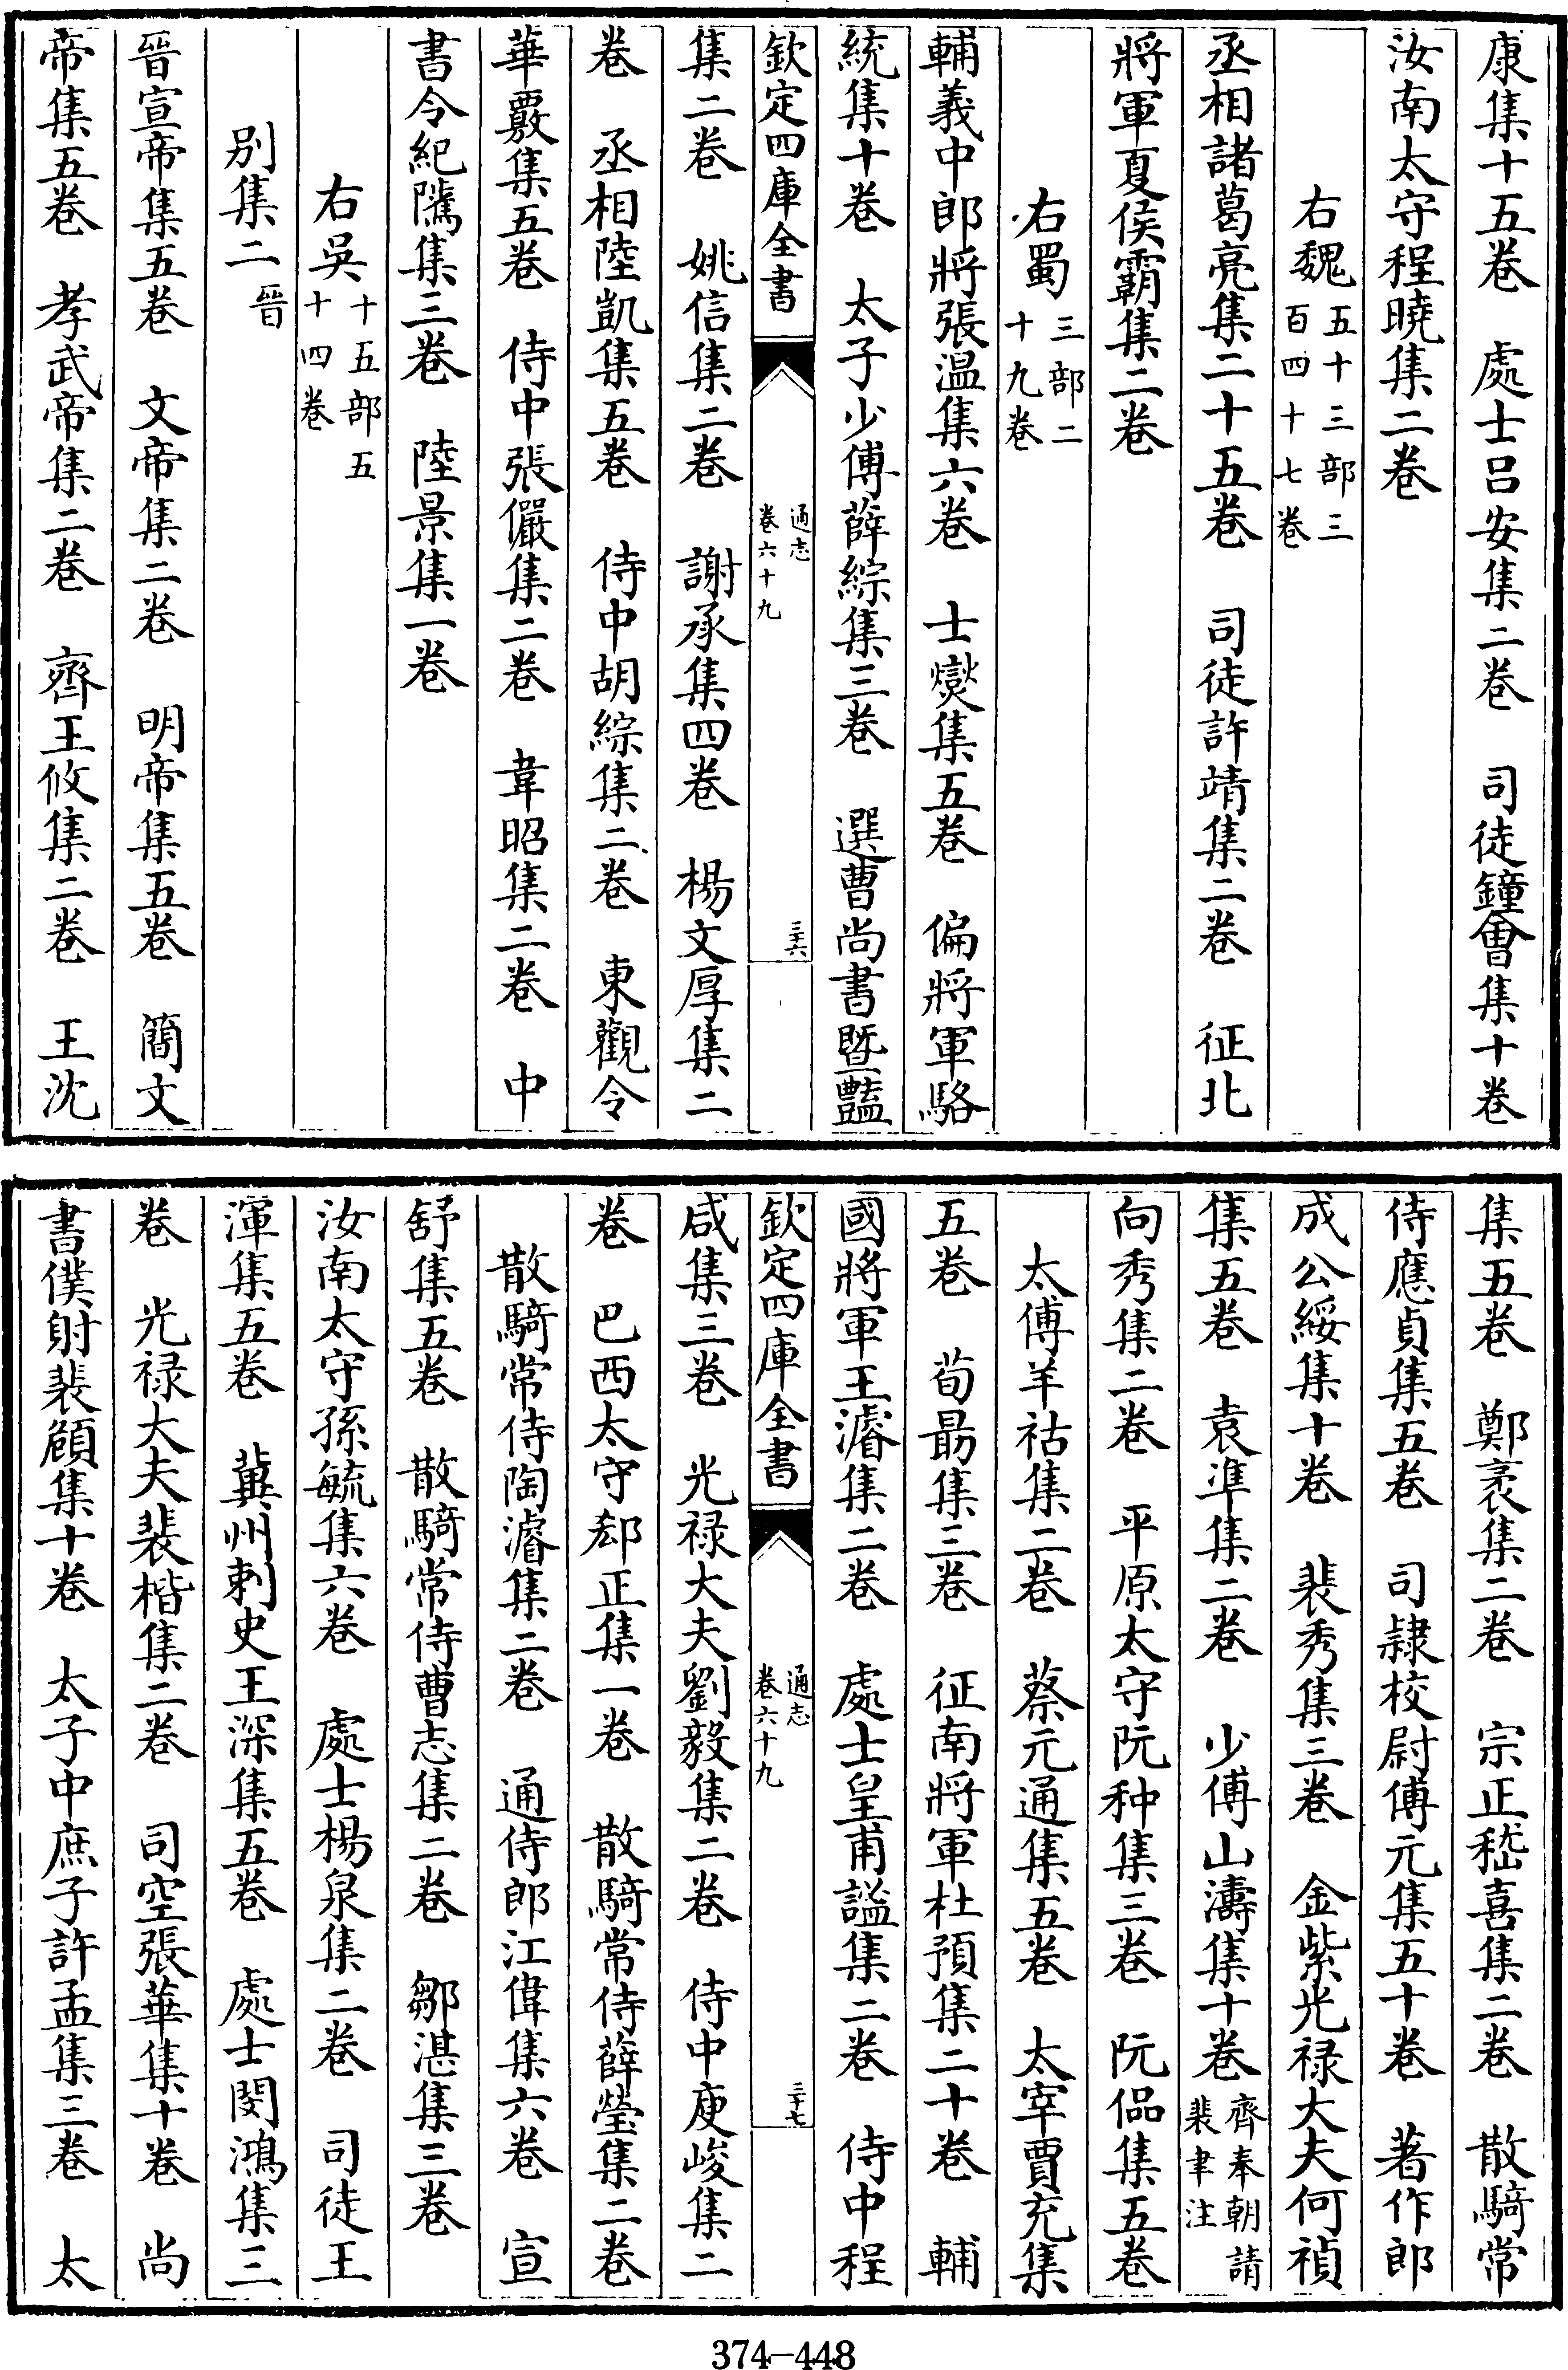 康集十五卷　處士吕安集二卷　司徒鐘會集十卷
汝南太守程曉集二卷
右魏五十三部三百四十七卷
丞相諸葛亮集二十五卷　司徒許靖集二卷　征北
將軍夏侯霸集二卷
右蜀三部二十九卷
輔義中郎將張温集六卷　士燮集五卷　偏將軍駱
統集十卷　太子少傅薛綜集三卷　選曹尚書暨豔
欽定四庫全書　通志卷六十九　三十六
集二卷　姚信集二卷　謝承集四卷　楊文厚集二
卷　丞相陸凱集五卷　侍中胡綜集二卷　東觀令
華覈集五卷　侍中張儼集二卷　韋昭集二卷　中
書令紀隲集三卷　陸景集一卷
右吳十五部五十四卷
别集二晉
晉宣帝集五卷　文帝集二卷　明帝集五卷　簡文
帝集五卷　孝武帝集二卷　齊王攸集二卷　王沈
集五卷　鄭袤集二卷　宗正嵇喜集二卷　散騎常
侍應貞集五卷　司隷校尉傅元集五十卷　著作郎
成公綏集十卷　裴秀集三卷　金紫光禄大夫何禎
集五卷　袁準集二卷　少傅山濤集十卷齊奉朝請裴聿注
向秀集二卷　平原太守阮种集三卷　阮侃集五卷
太傅羊祜集二卷　蔡元通集五卷　太宰賈充集
五卷　荀勗集三卷　征南將軍杜預集二十卷　輔
國將軍王濬集二卷　處士皇甫謐集二卷　侍中程
欽定四庫全書　通志卷六十九　三十七
咸集三卷　光禄大夫劉毅集二卷　侍中庾峻集二
卷　巴西太守郄正集一卷　散騎常侍薛瑩集二卷
散騎常侍陶濬集二卷　通侍郎江偉集六卷　宣
舒集五卷　散騎常侍曹志集二卷　鄒湛集三卷
汝南太守孫毓集六卷　處士楊泉集二卷　司徒王
渾集五卷　冀州刺史王深集五卷　處士閔鴻集三
卷　光禄大夫裴楷集二卷　司空張華集十卷　尚
書僕射裴頠集十卷　太子中庶子許孟集三卷　太
374-448